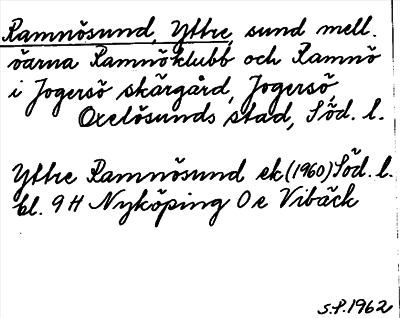 Ramnösund, Yttre, sund mell.
öarna Ramnöklubb och Ramnö
i Jogersö skärgård, Jogersö,
Oxelösunds stad, Söd. l.
Yttre Ramnösund ek (1960) Söd. l.
bl. 9 H Nyköping O e Vibäck
S.P. 1962